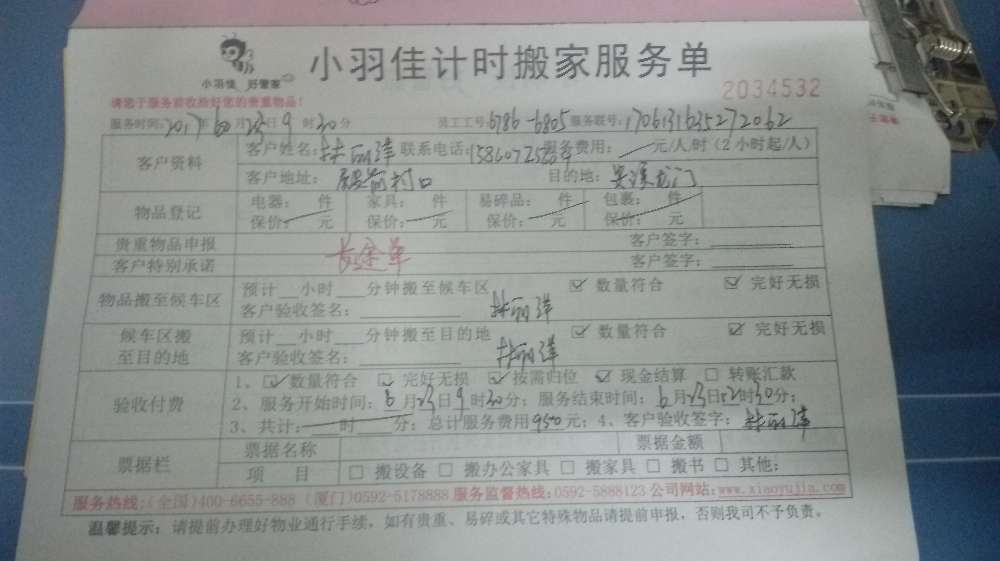 小羽佳 好管家
小羽佳计时搬家服务单
2034532
请您于服务前收拾好您的贵重物品！
服务时间：2017年6月23日9时30分 员工工号：6786-6805 服务联号：1706131635272062
客户资料 客户姓名：林丽萍 联系电话： 服务费用： 元/人/时（2小时起/人）
客户地址：殿前村口 目的地：龙门
物品登记 电器： 件 家具： 件 易碎品： 件 包裹： 件
保价： 元 保价： 元 保价： 元 保价： 元
贵重物品申报 客户签字：
长途单
客户特别承诺 客户签字：
物品搬至候车区 预计 小时 分钟搬至候车区 ☑ 数量符合 ☑ 完好无损
客户验收签名： 林丽萍
候车区搬至目的地 预计 小时 分钟搬至目的地 ☑ 数量符合 ☑ 完好无损
客户验收签名： 林丽萍
验收付费 1、☑ 数量符合 ☑ 完好无损 ☑ 按需归位 ☑ 现金结算 □ 转账汇款
2、服务开始时间：6月23日9时30分；服务结束时间：6月23日12时30分；
3、共计： 时 分；总计服务费用950元；4、客户验收签字：林丽萍
票据栏 票据名称 票据金额
项 目 □ 搬设备 □ 搬办公家具 □ 搬家具 □ 搬书 □ 其他：
服务热线：（全国）400-6655-888（厦门）0592-5178888 服务监督热线：0592-5888123 公司网站：www.xiaoyujia.com
温馨提示：请提前办理好物业通行手续，如有贵重、易碎或其它特殊物品请提前申报，否则我司不予负责。